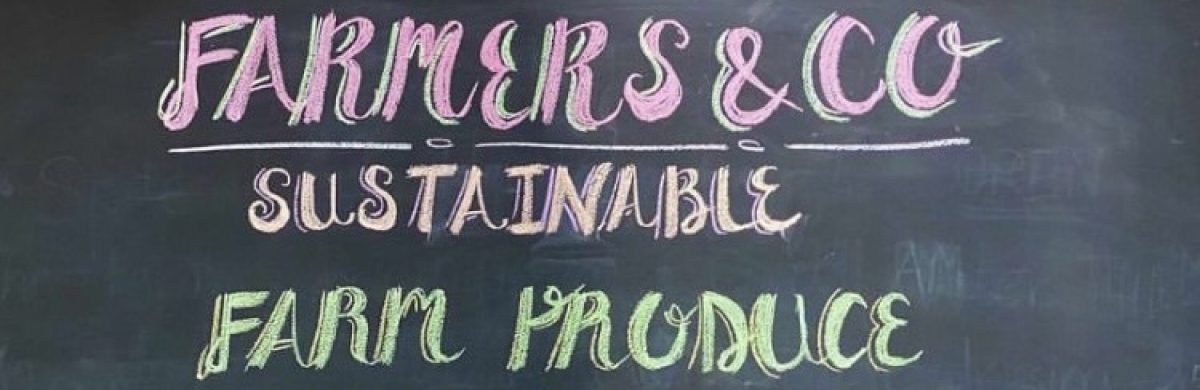 FARMERS & CO
SUSTAINABLE
FARM PRODUCE